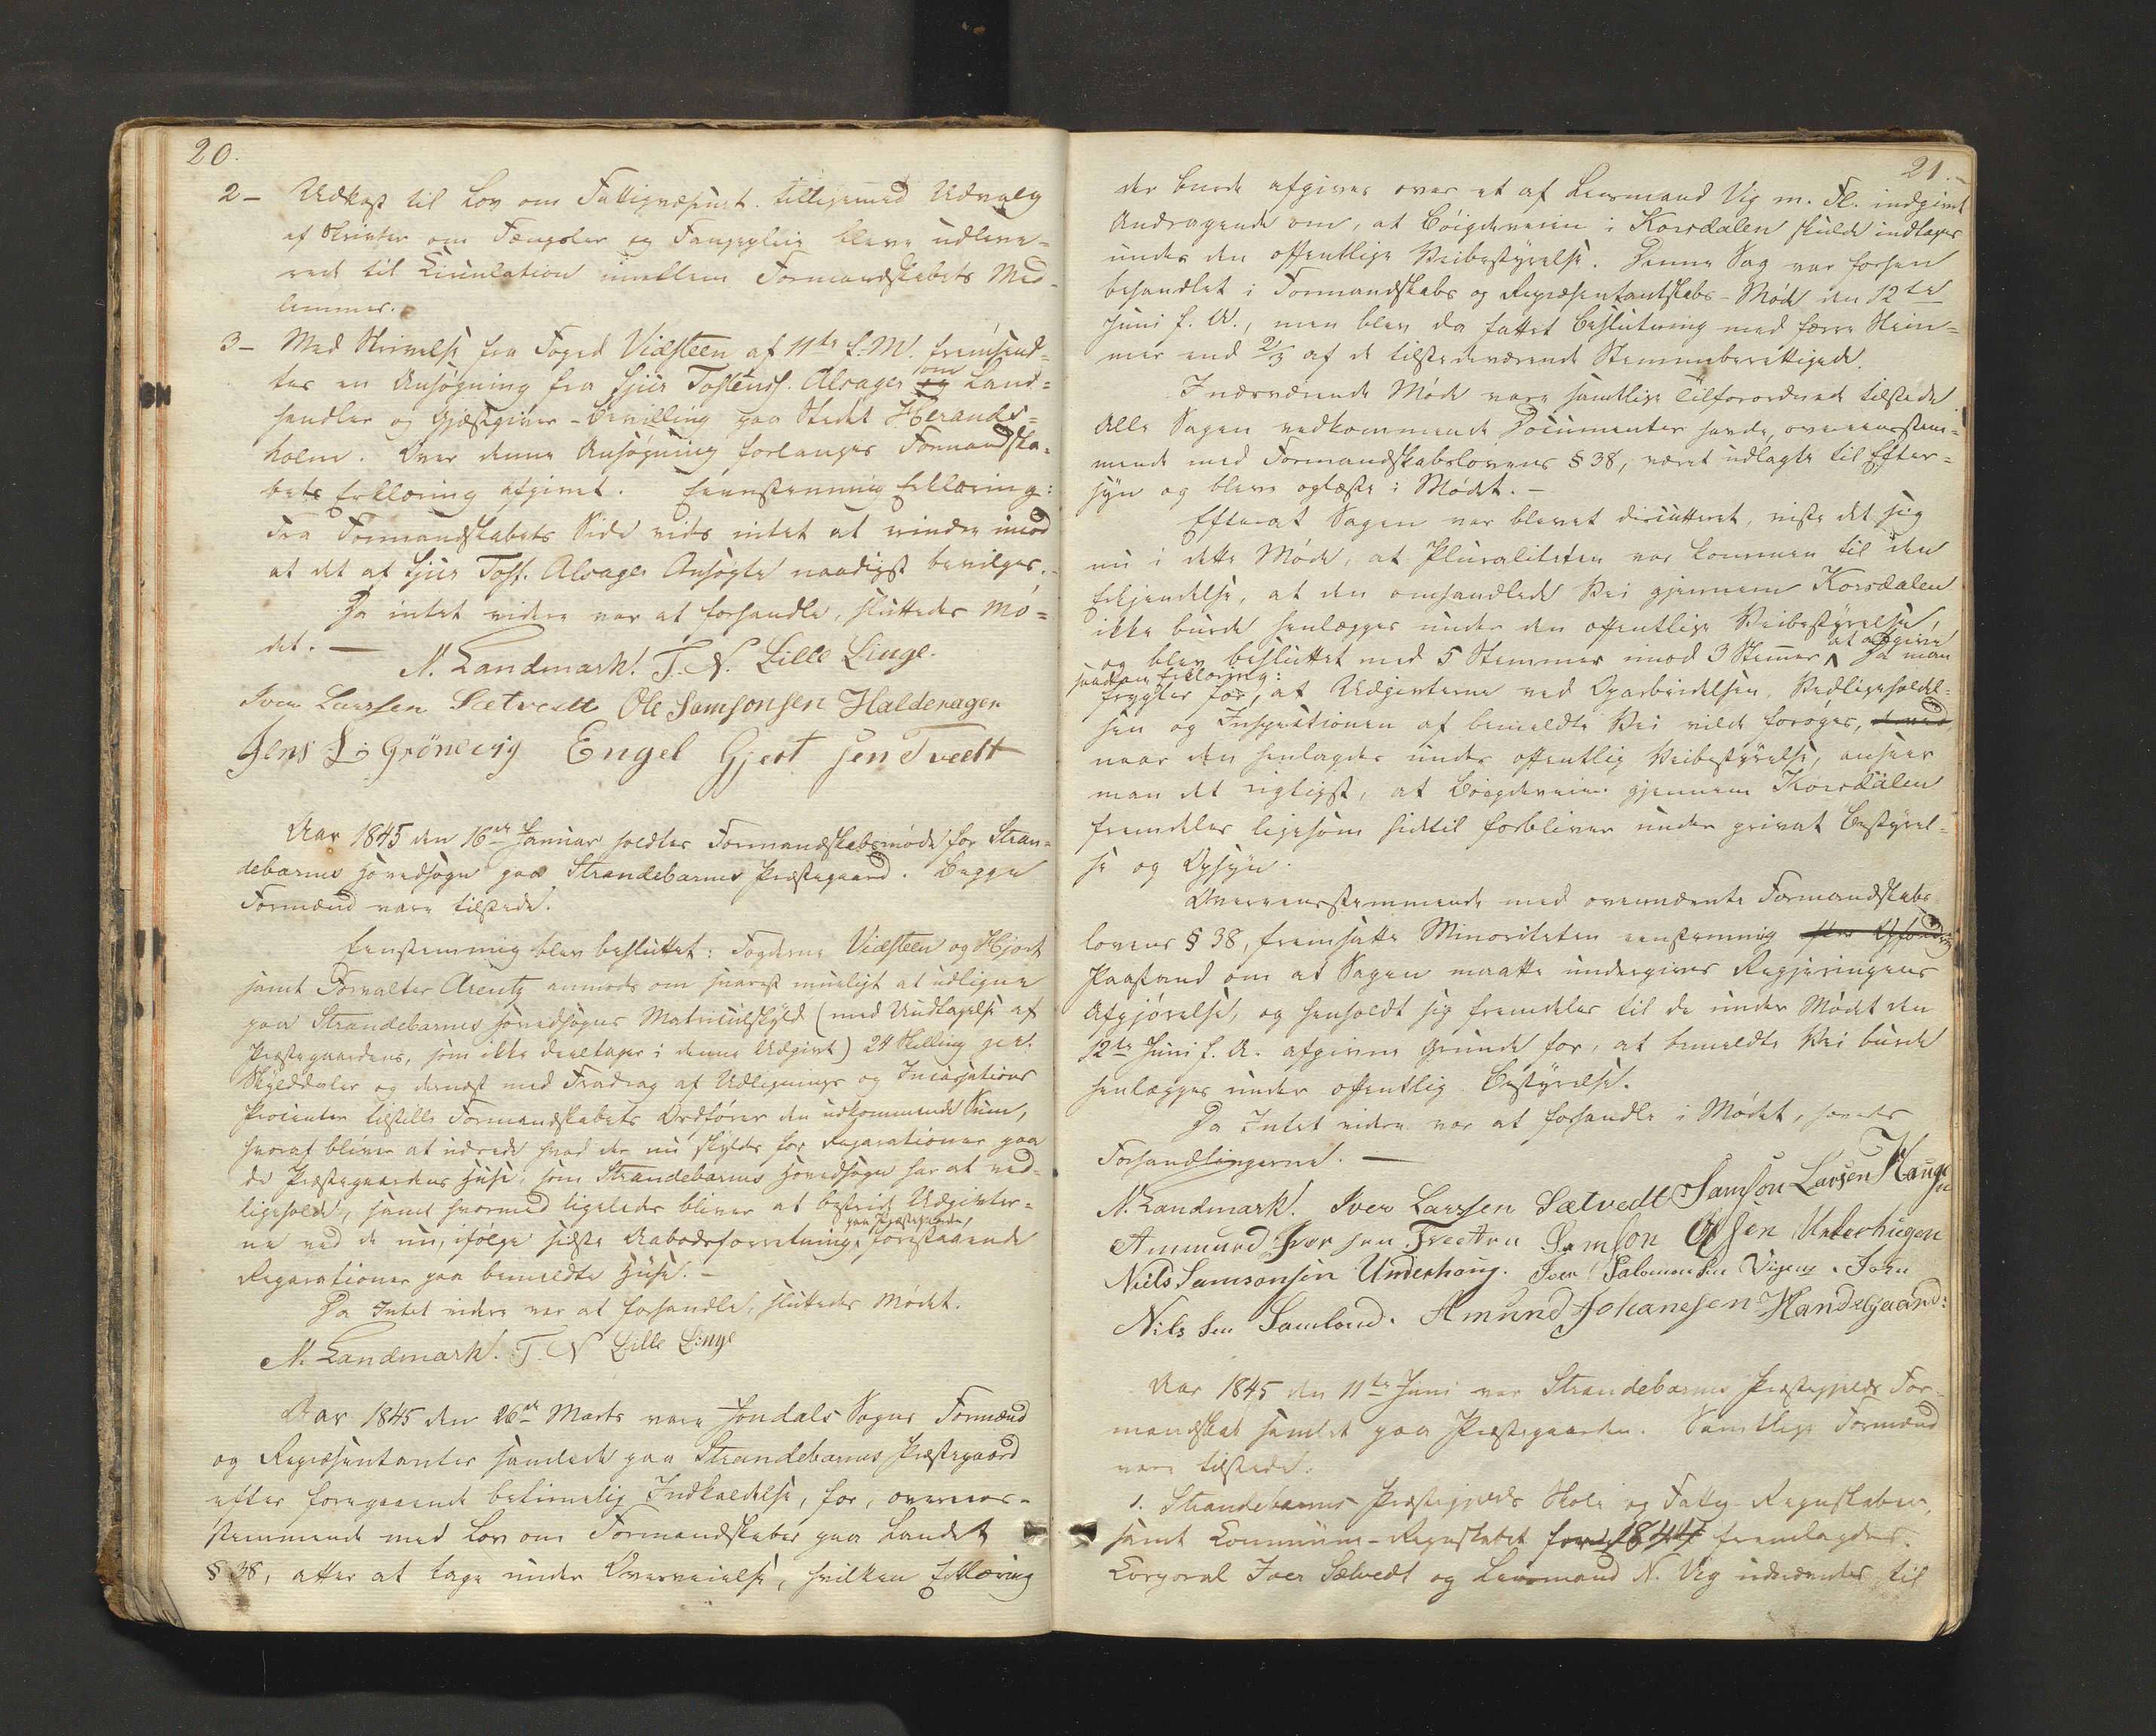 20.
2 - Udkast til Lov om Fattigvæsenet tilligemed Udvalg
af Skrifter om Fængsler og Fangepleie bleve udleve-
rede til Circulation imellem Formandskabets Med-
lemmer.
3 - Med Skrivelse fra Foged Vidsteen af 11te f. M. fremsend-
tes en Ansøgning fra Sjur Tostenss. Alsager om Land-
handler og Gjæstgiver-Bevilling paa Stedet Herands-
holm. Over denne Ansøgning forlanges Formandska-
bets Erklæring afgivet. Eenstemmig Erklæring:
Fra Formandskabets Side vides intet at erindre imod
at det af Sjur Tost. Alsager Ansøgte naadigst bevilges.
Da intet videre var at forhandle, sluttedes Mø-
det. —
N. Landmark. T. N. Lille Linge.
Iver Larssen Sætvedt Ole Samsonsen Haldenagen
Jens L: Grönevig Engel Gjert sen Tvedt
Aar 1845 den 16de Januar holdtes Formandskabsmøde for Stran-
debarms Hovedsogn paa Strandebarms Præstegaard. Begge
Formænd vare tilstede.
Eenstemmig blev besluttet: Fogderne Vidsteen og Hjort
samt Forvalter Arentz anmodes om snarest mueligt at udligne
paa Strandebarms Hovedsogns Matriculskyld (med Undtagelse af
Præstegaardens, som ikke deeltager i denne Udgivt) 24 Skilling pr.
Skylddaler og dernæst med Fradrag af Udlignings og Incassations
Procenter tilstille Formandskabets Ordfører den udkommende Sum,
hvoraf bliver at udrede hvad der nu skyldes for Reparationer paa
de Præstegaardens Huse, som Strandebarms Hovedsogn har at ved-
ligeholde, samt hvormed ligeledes bliver at bestride Udgivter-
ne ved de nu, ifølge sidste Aabodsforretning paa Præstegaarden, forestaaende
Reparationer paa bemeldte Huse. —
Da Intet videre var at forhandle, sluttedes Mødet.
N. Landmark. T. N Lille Linge
Aar 1845 den 26de Marts vare Jondals Sogns Formænd
og Repræsentanter samlede paa Strandebarms Præstegaard
efter foregaaende betimelig Indkaldelse, for, overeens-
stemmende med Lov om Formandskaber paa Landet
§ 38, atter at tage under Overveielse, hvilken Erklæring
21.
der burde afgives over et af Lensmand Vig m. Fl. indgivet
Andragende om, at Bøigdeveien i Korsdalen skulde indtages
under den offentlige Veibestyrelse. Denne Sag var forhen
behandlet i Formandskabs og Repræsentantskabs-Møde den 12te
Juni f. A., men blev da fattet Beslutning med færre Stem-
mer end 2/3 af de tilstedeværende Stemmeberettigede.
I nærværende Møde vare samtlige Tilforordnede tilstede.
Alle Sagen vedkommende Documenter havde, overeensstem-
mende med Formandskabslovens § 38, været udlagte til Efter-
syn og bleve oplæste i Mødet. —
Efterat Sagen var blevet discutteret, viste det sig
nu i dette Møde, at Pluraliteten var kommen til den
Erkjendelse, at den omhandlede Vei gjennem Korsdalen
ikke burde henlægges under den offentlige Veibestyrelse,
og blev besluttet med 5 Stemmer imod 3 Stemer at afgive
saadan Erklæring: Da man
frygter for, at Udgivterne ved Oparbeidelsen, Vedligeholdel-
sen og Inspectionen af bemeldte Vei vilde forøges,
naar den henlagdes under offentlig Veibestyrelse, anseer
man det rigtigst, at Bøigdeveien gjennem Korsdalen
fremdeles ligesom hidtil forbliver under privat Bestyrel-
se og Opsyn.
Overeensstemmende med ovennævnte Formandskabs-
lovens § 38, fremsatte Minoriteten eenstemmig
Paastand om at Sagen maatte undergives Regjeringens
Afgjørelse, og henholdt sig fremdeles til de under Mødet den
12te Juni f. A. afgivne Grunde for, at bemeldte Vei burde
henlægges under offentlig Bestyrelse.
Da Intet videre var at forhandle i Mødet, hævedes
Forhandlingerne. —
N. Landmark. Iver Larssen Sætvedt Samson Larsen Hauge
Ammund Iver sen Tveitten Samson Olsen Underhaugen
Niels Samsonsen Underhoug. Iver Salomonsen Vigene. John
Nils sen Samland. Amund Johanesen Handegaard:
Aar 1845 den 11te Juni var Strandebarms Præstegjelds For-
mandskab samlet paa Præstegaarden. Samtlige Formænd
vare tilstede.
1. Strandebarms Præstegjelds Skole og Fattig-Regnskaber,
samt Commune-Regnskabet for 1844 fremlagdes.
Corporal Iver Sætvedt og Lensmand N. Vig udnævntes til